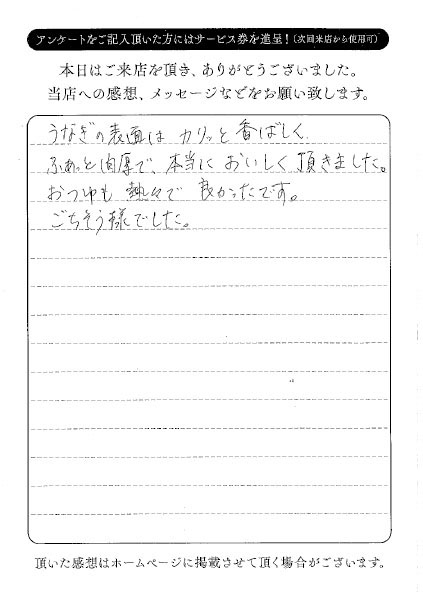 アンケートをご記入頂いた方にはサービス券を進呈！(次回来店から使用可)
本日はご来店を頂き、ありがとうございました。
当店への感想、メッセージなどをお願い致します。
うなぎの表面は カリッと 香ばしく、
ふわっと肉厚で、本当に おいしく 頂きました。
おつゆも 熱々で 良かったです。
ごちそう様でした。
頂いた感想はホームページに掲載させて頂く場合がございます。